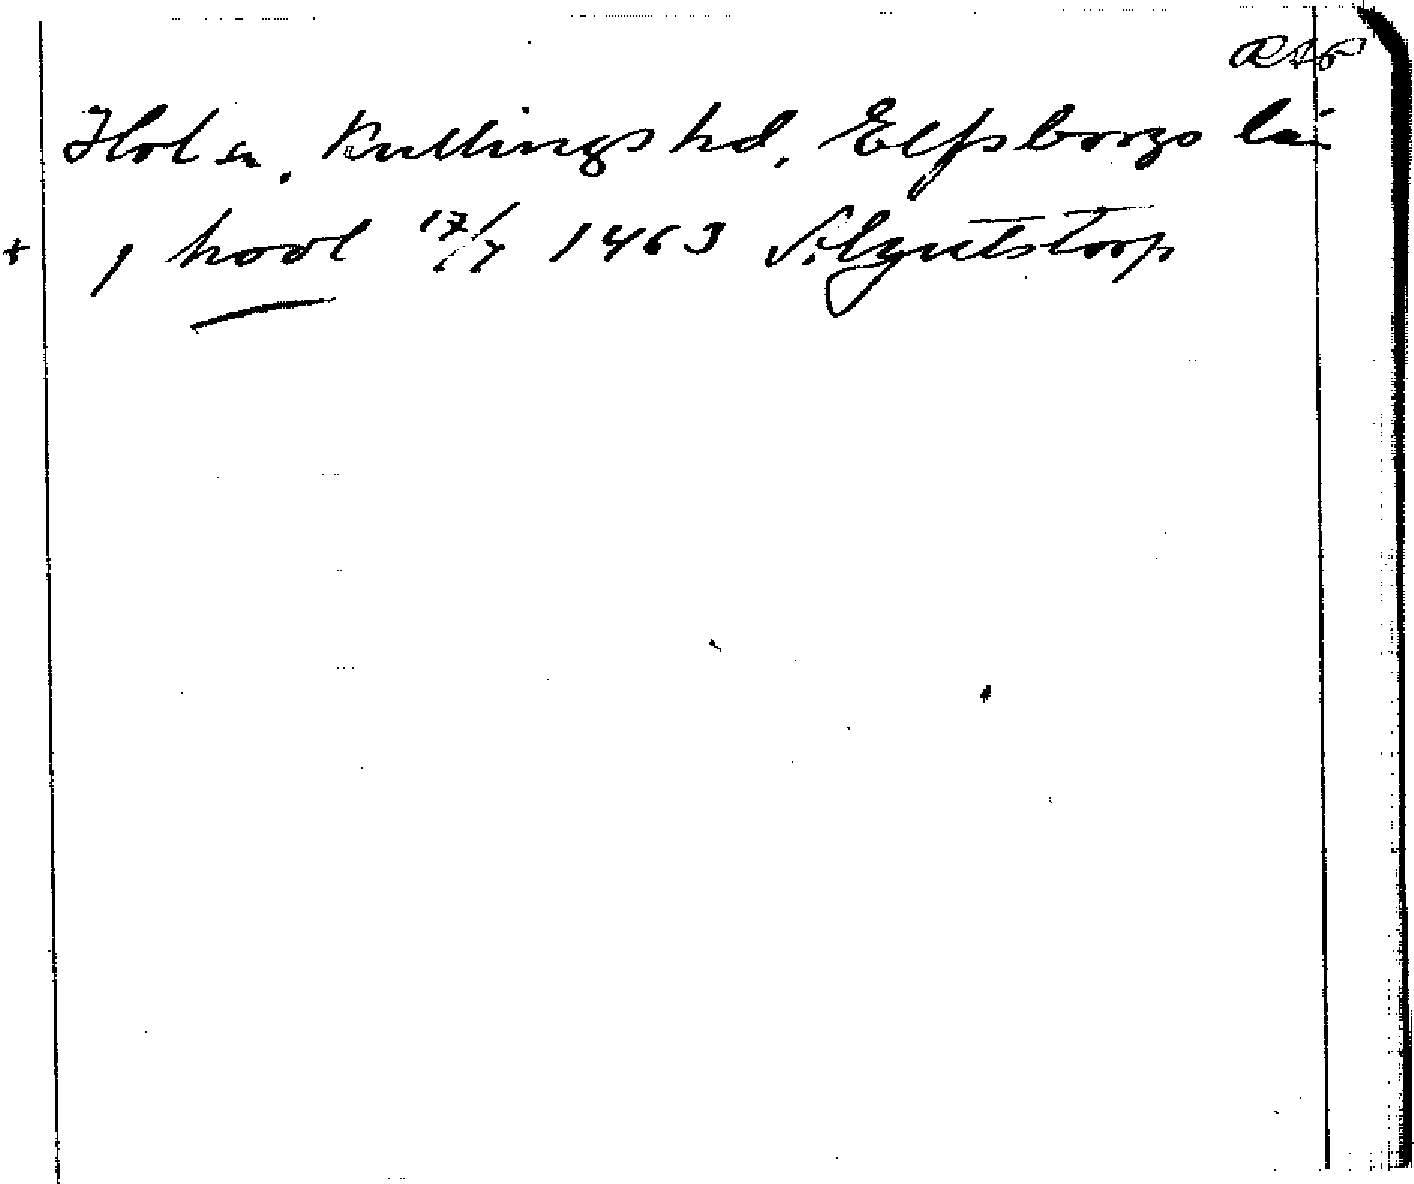 Hol sn, Kullings hd, Elfsborgs län
+ , hool 17/7 1463 Algutstorp